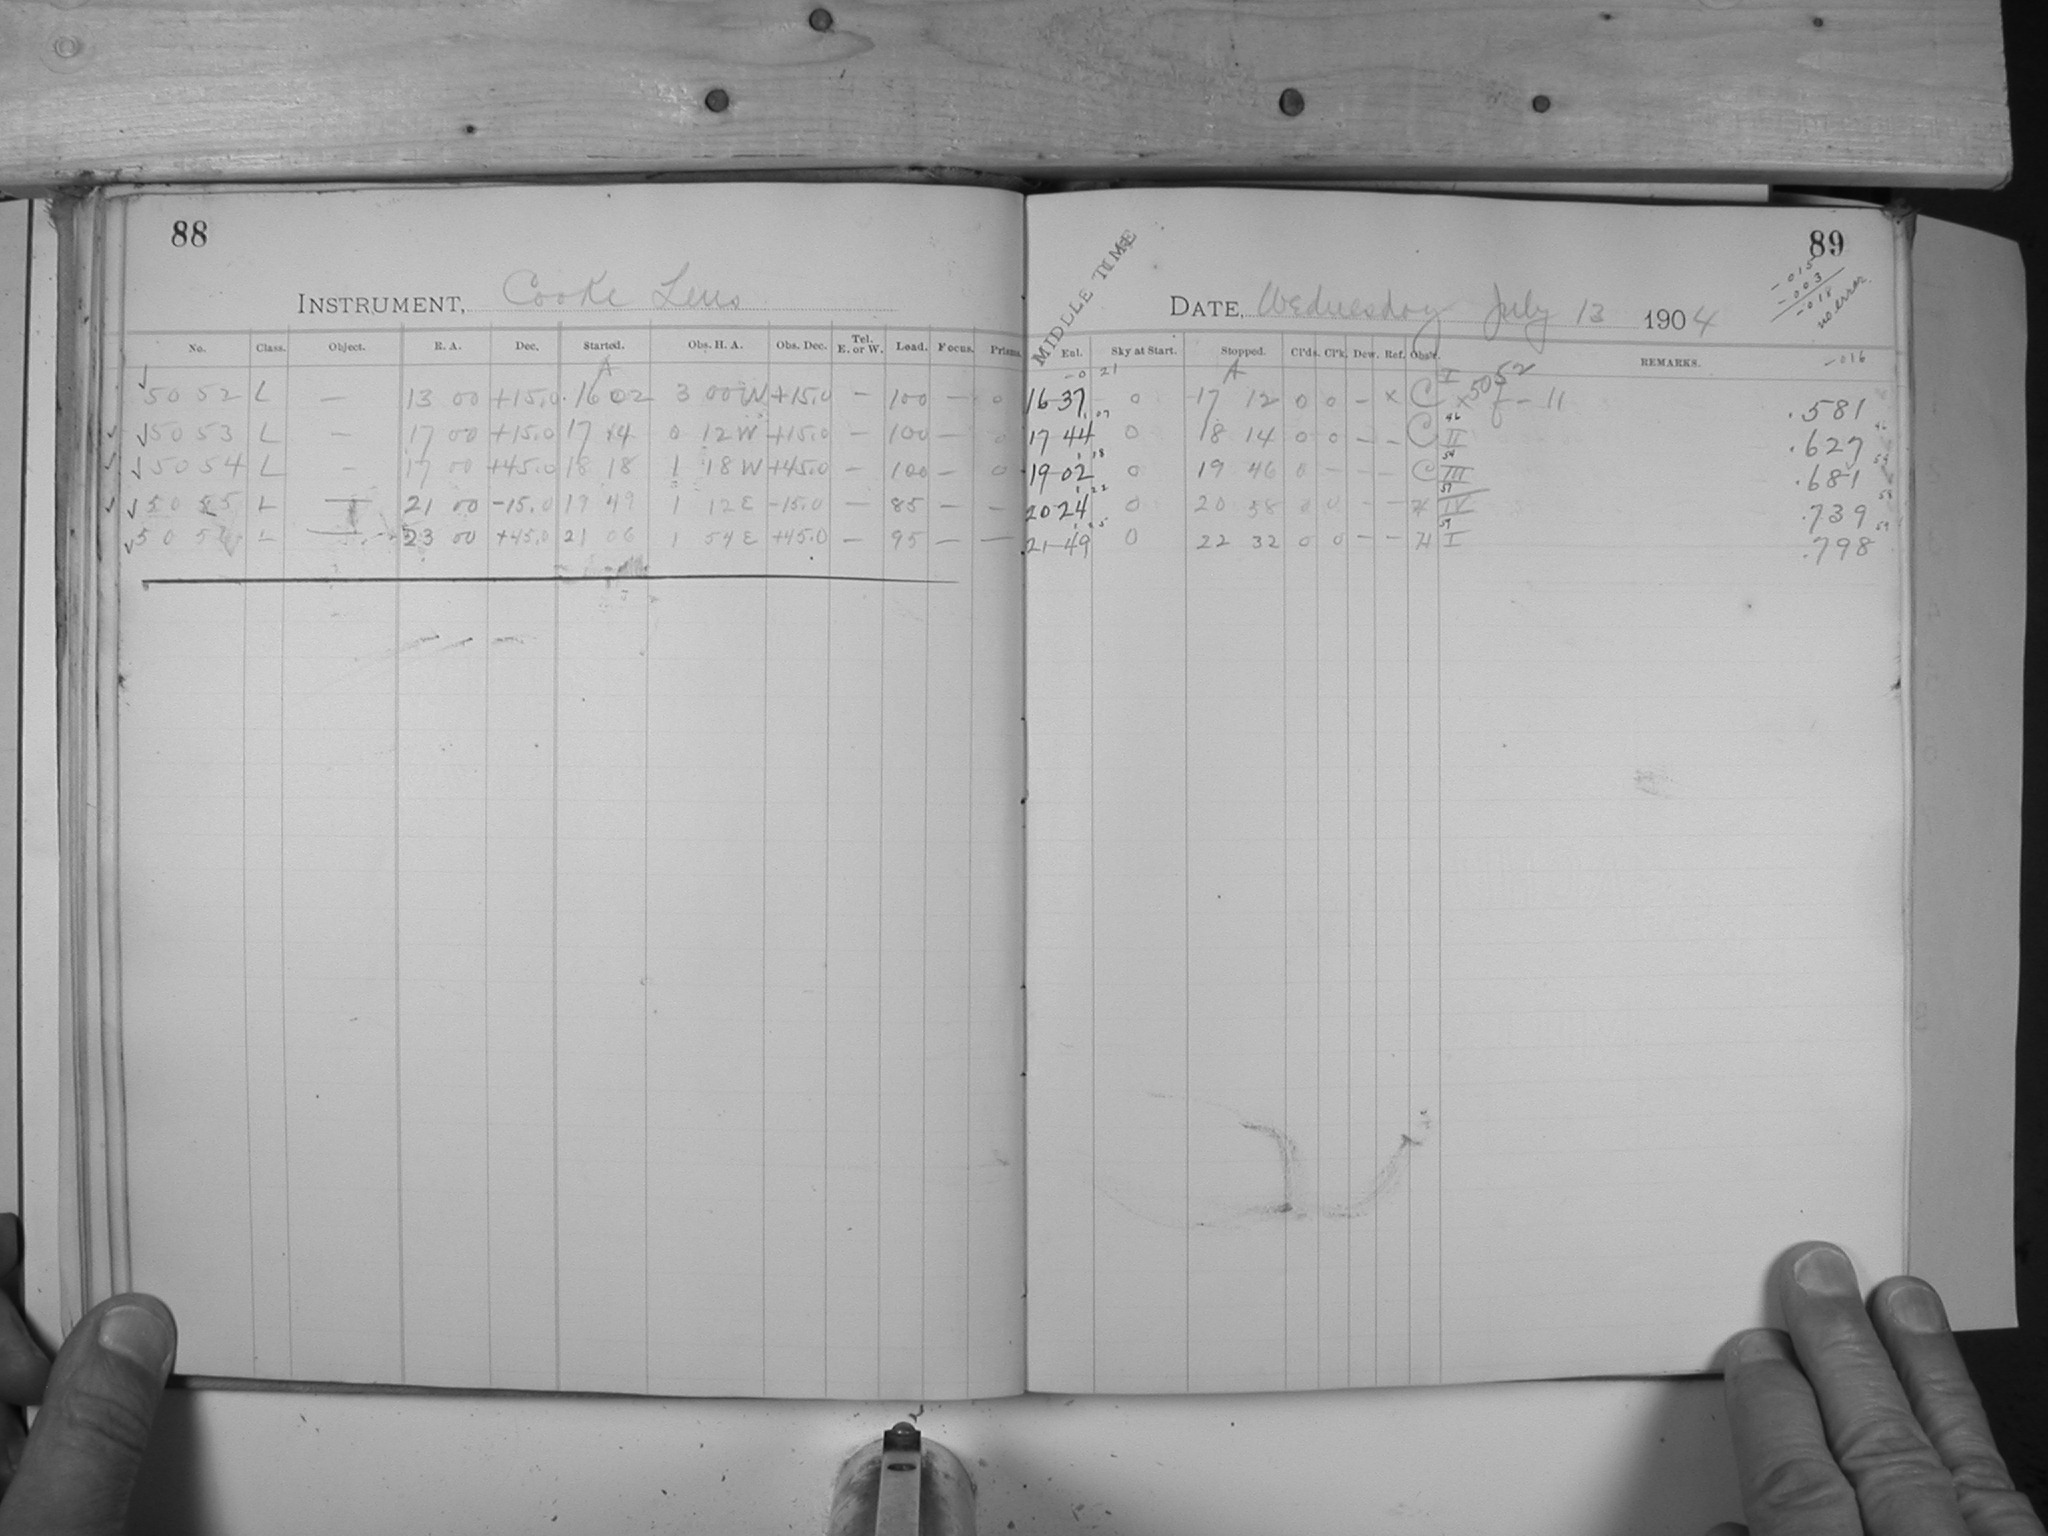 88
INSTRUMENT, Cooke Lens
No. Class. Object. R. A. Dec. Started. Obs. H. A. Obs. Dec. Tel. E. or W. Load. Focus. Prisms.
A
✓ 5052 L — 13 00 +15.0 16 02 3 00 W +15.0 — 100 — 0
✓ ✓ 5053 L — 17 00 +15.0 17 14 0 12 W +15.0 — 100 — 0
✓ ✓ 5054 L — 17 00 +45.0 18 18 1 18 W +45.0 — 100 — 0
✓ ✓ 5055 L — 21 00 -15.0 19 49 1 12 E -15.0 — 85 — —
✓ 505 L — 23 00 +45.0 21 06 1 54 E +45.0 — 95 — —
89
MIDDLE TIME
-015
-003
-018
no error
DATE, Wednesday July 13 1904
Eul. Sky at Start. Stopped. Cl'ds. Cl'k. Dew. Ref. Obs'r. REMARKS. -016
-0 21 A
16 37 0 17 12 0 0 — x C I x 5052 f - 11 .581
1 07 46 46
17 44 0 18 14 0 0 — — C II .627
1 18 54 54
19 02 0 19 46 0 — — — C III .681
1 22 57 58
20 24 0 20 58 0 0 — — H IV .739
1 25 59 59
21 49 0 22 32 0 0 — — H I .798